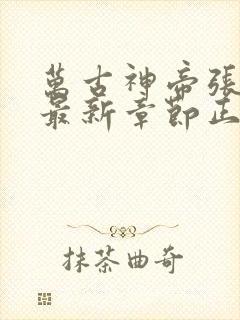 萬古神帝張
最新章節正
抹茶曲奇